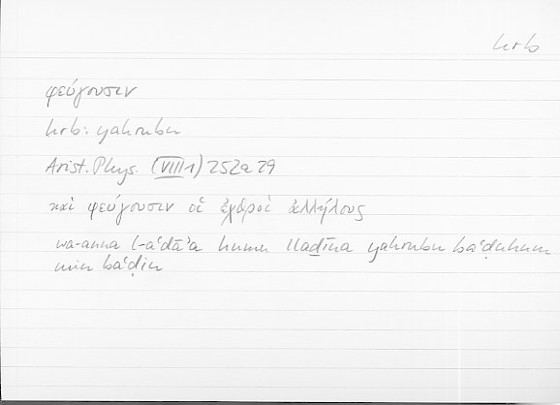 hrb
φεύγουσιν
hrb: yahrubu
Arist. Phys. (VIII 1) 252a29
καὶ φεύγουσιν οἱ ἐχθροὶ ἀλλήλους
wa-anna l-aʿdāʾa humu lladīna yahrubu baʿḍuhum
min baʿḍin